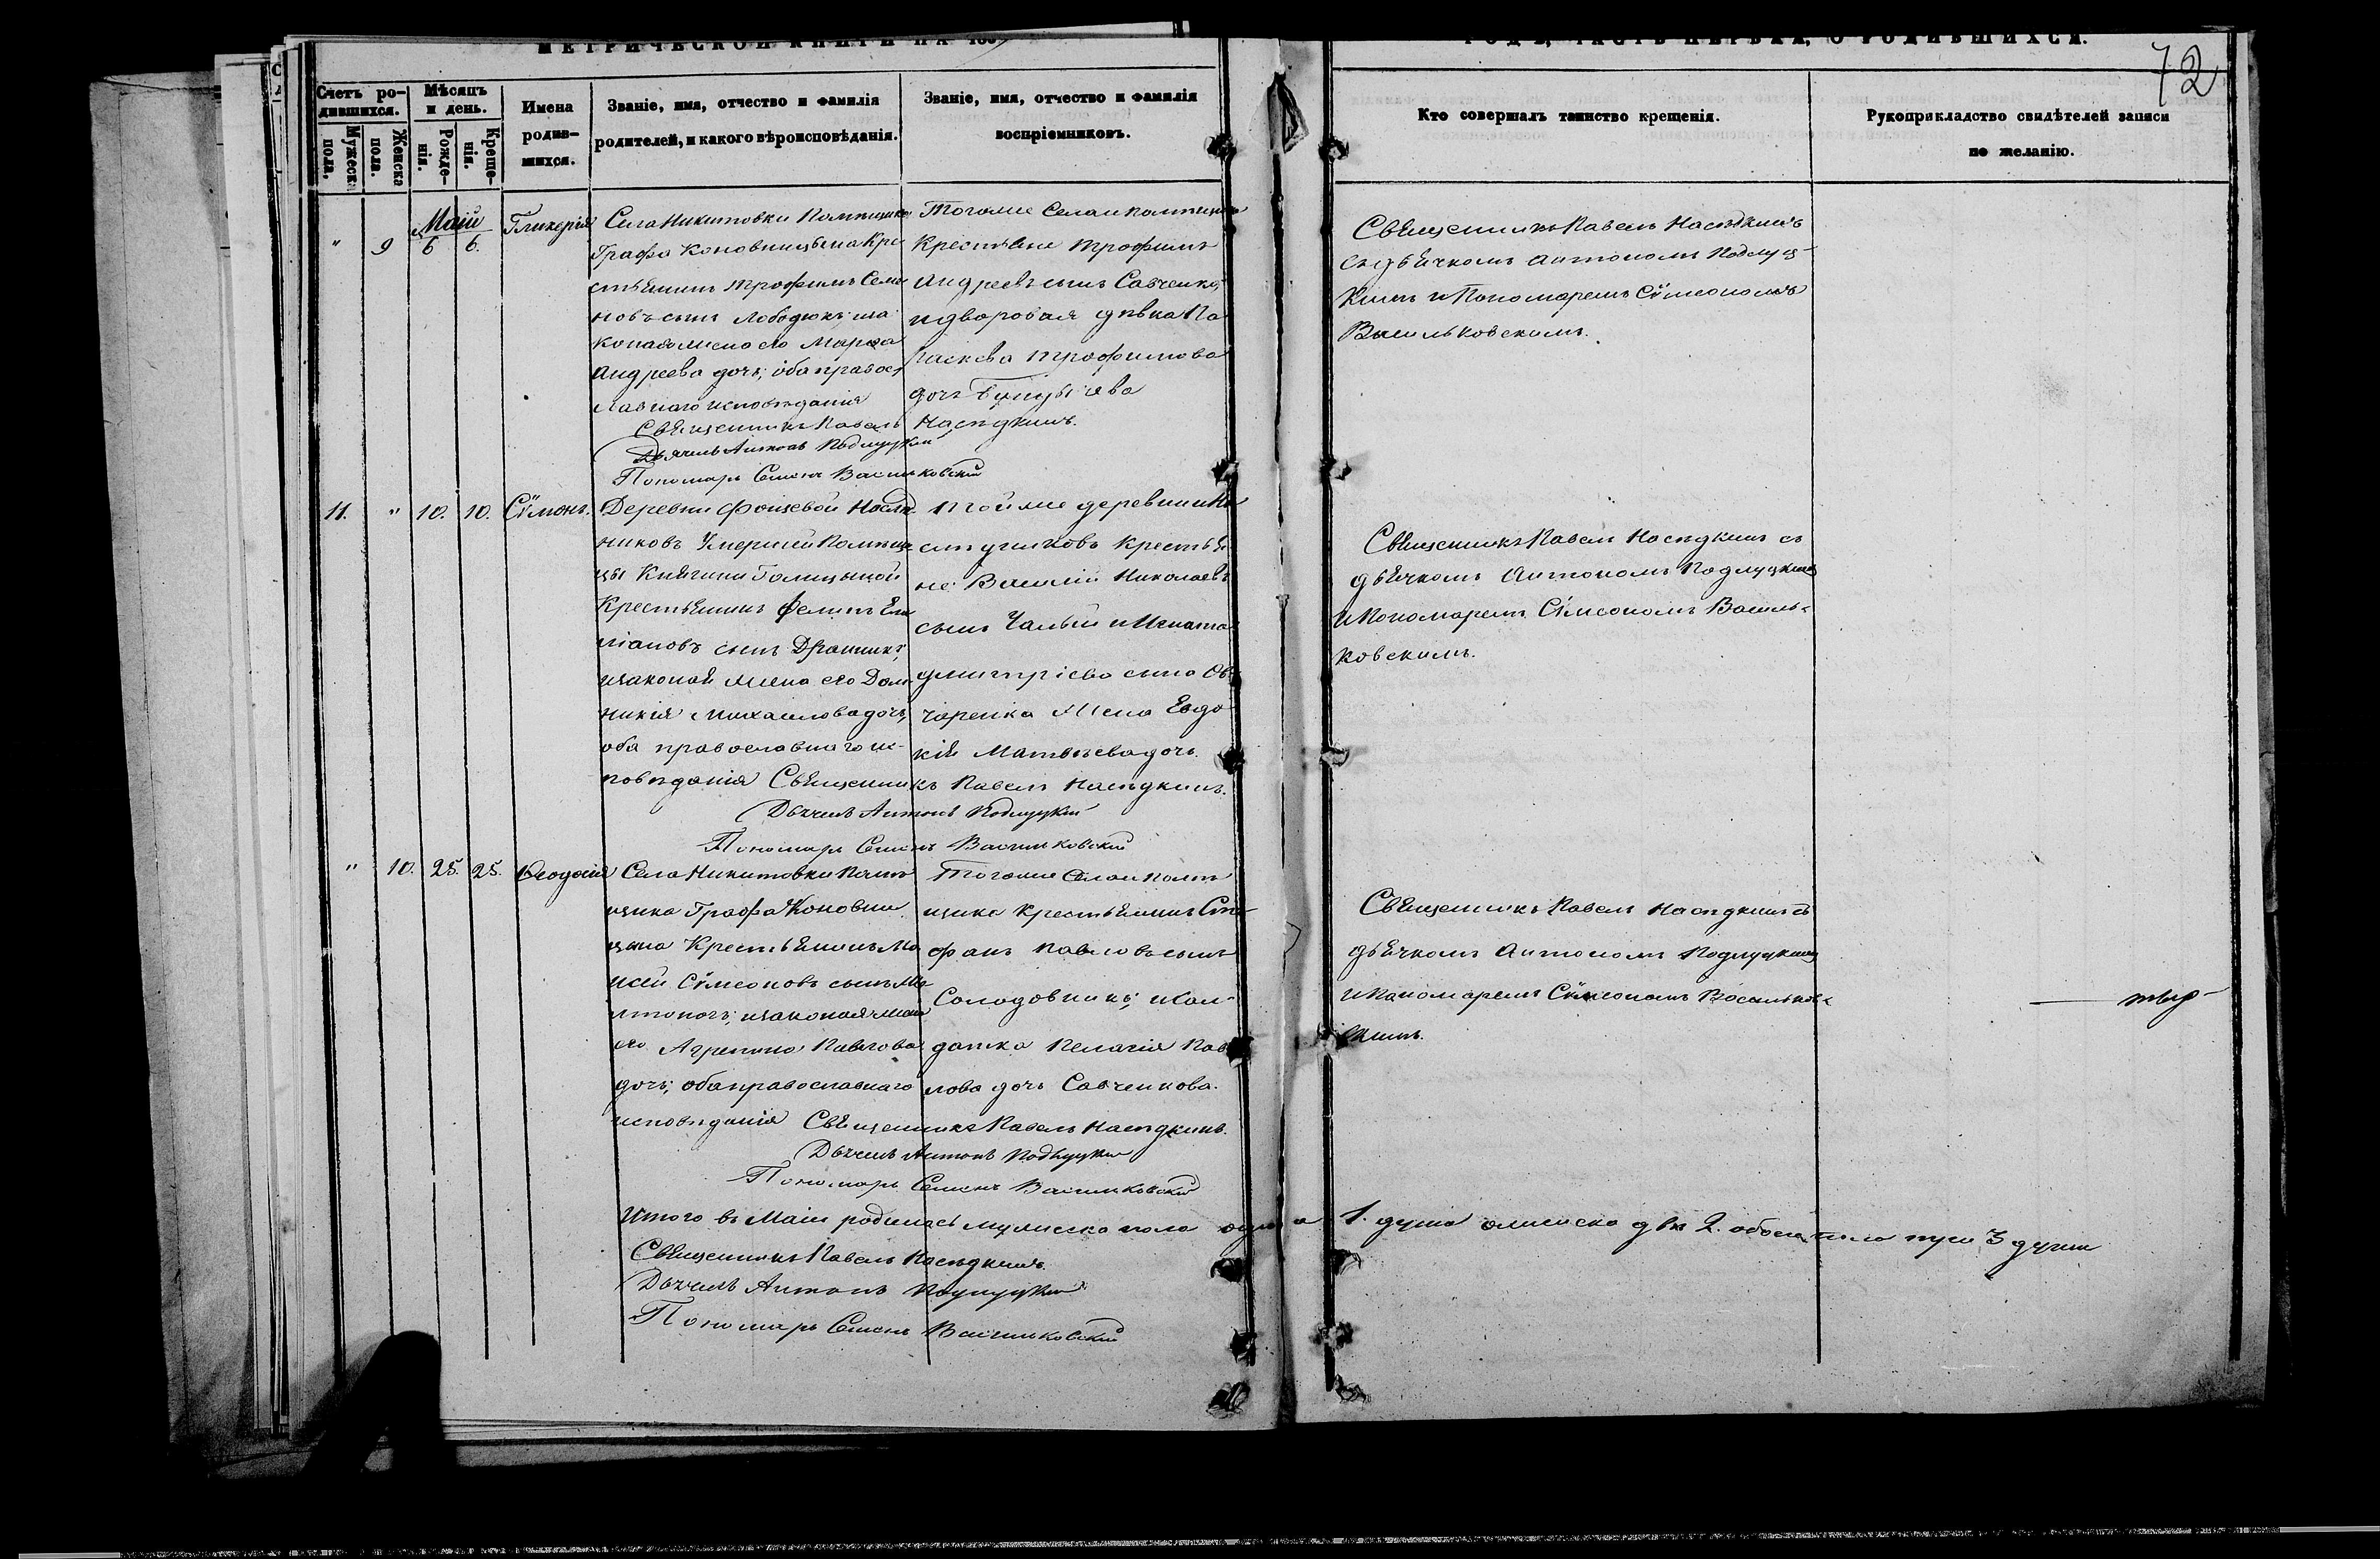 МЕТРИЧЕСКОЙ КНИГИ НА 185
ГОДЪ, ЧАСТЬ ПЕРВАЯ, О РОДИВШИХСЯ.
72
Счетъ ро-
дившихся.
Мужеска
пола.
Женска
пола.
Мѣсяцъ
и день.
Рожде-
нія.
Креще-
нія.
Имена
родив-
шихся.
Званіе, имя, отчество и фамилія
родителей, и какого вѣроисповѣданія.
Званіе, имя, отчество и фамилія
воспріемниковъ.
Кто совершалъ таинство крещенія.
Рукоприкладство свидѣтелей записи
по желанію.
Маій
" 9 6 6. Гликерія
Села Никитовки Помѣщика
Графа Коновницына Кре
стьянинъ Трофимъ Симе
новъ сынъ
жена его Марѳа
Андреева дочь; оба правос
лавнаго исповѣданія
Священникъ Павелъ Насѣдкинъ.
Дьячекъ Антонъ Подлуцкій
Пономарь Семенъ Васильковскій
Тогоже Села и помѣщика
Крестьяне Трофимъ
Андреевъ сынъ Савченко
и дворовая дѣвка Па
раскева Трофимова
дочь
Священникъ Павелъ Насѣдкинъ
съ дьячкомъ Антономъ Подлуц-
кимъ и Пономаремъ Сѵмеономъ
Васильковскимъ.
11. " 10. 10. Сѵмонъ.
Деревни Наслѣд
никовъ Умершей Помѣщи
цы Княгини Голицыной
Крестьянинъ Филипъ Еме
ліановъ сынъ
и законая жена его Дом-
никія Михаилова дочь,
оба православнаго ис-
повѣданія Священникъ Павелъ Насѣдкинъ.
Дьячекъ Антонъ Подлуцкій
Пономарь Семенъ Васильковскій
Тойже деревни и На
слѣдниковъ Крестья
не: Василій Николаевъ
сынъ Чалый и Игната
Дмитріева сына Ов
чаренка Жена Евдо
кія Матвѣева дочь.
Священникъ Павелъ Насѣдкинъ съ
дьячкомъ Антономъ Подлуцкимъ
и Пономаремъ Сѵмеономъ Василь-
ковскимъ.
" 10. 25. 25. Ѳеодосія
Села Никитовки Помѣ
щика Графа Коновни
цына Крестьянинъ Мо
исей Сѵмеоновъ сынъ
и законая жена
его Агрепина Павлова
дочь; оба православнаго
исповѣданія Священникъ Павелъ Насѣдкинъ.
Дьячекъ Антонъ Подлуцкій
Пономарь Семенъ Васильковскій
Тогоже Села и помѣ
щика Крестьянинъ Сте-
фанъ Павловъ сынъ
Солодовникъ; и Сол-
датка Пелагія Пав
лова дочь Савченкова.
Священникъ Павелъ Насѣдкинъ съ
дьячкомъ Антономъ Подлуцкимъ
и Пономаремъ Сѵмеономъ Васильков-
скимъ.
Итого въ Маіи родилась мужеска пола одна 1. душа женска двѣ 2. обоего пола три 3 души
Священникъ Павелъ Насѣдкинъ.
Дьячекъ Антонъ Подлуцкій
Пономарь Семенъ Васильковскій